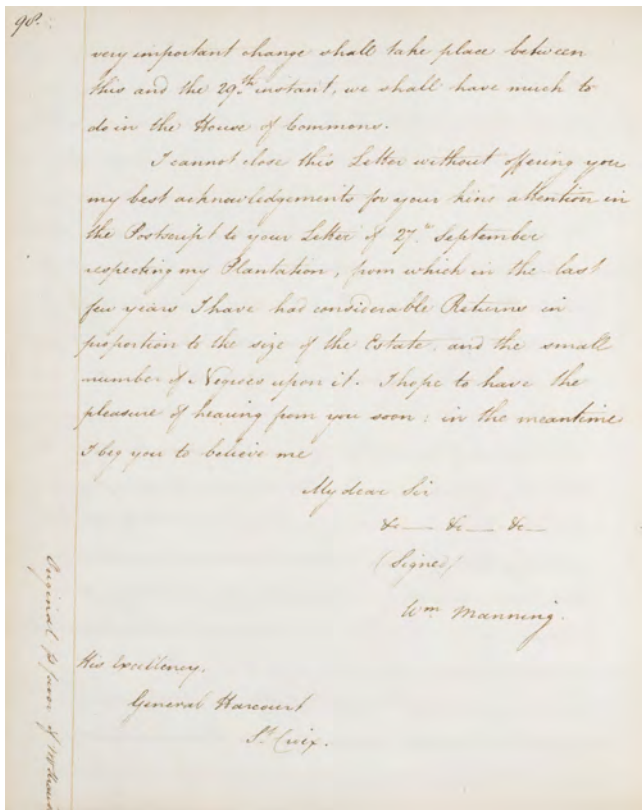 98.
very important change shall take place between
this and the 29th instant, we shall have much to
do in the House of Commons.
I cannot close this Letter without offering you
my best acknowledgements for your kind attention in
the Postscript to your Letter of 27th September
respecting my Plantation, from which in the last
few years I have had considerable Returns in
proportion to the size of the Estate, and the small
number of Negroes upon it. I hope to have the
pleasure of hearing from you soon: in the meantime
I beg you to believe me
My dear Sir
&c— &c— &c—
(Signed)
Wm Manning.
His Excellency,
General Harcourt
St Croix.
Original favor of Mr